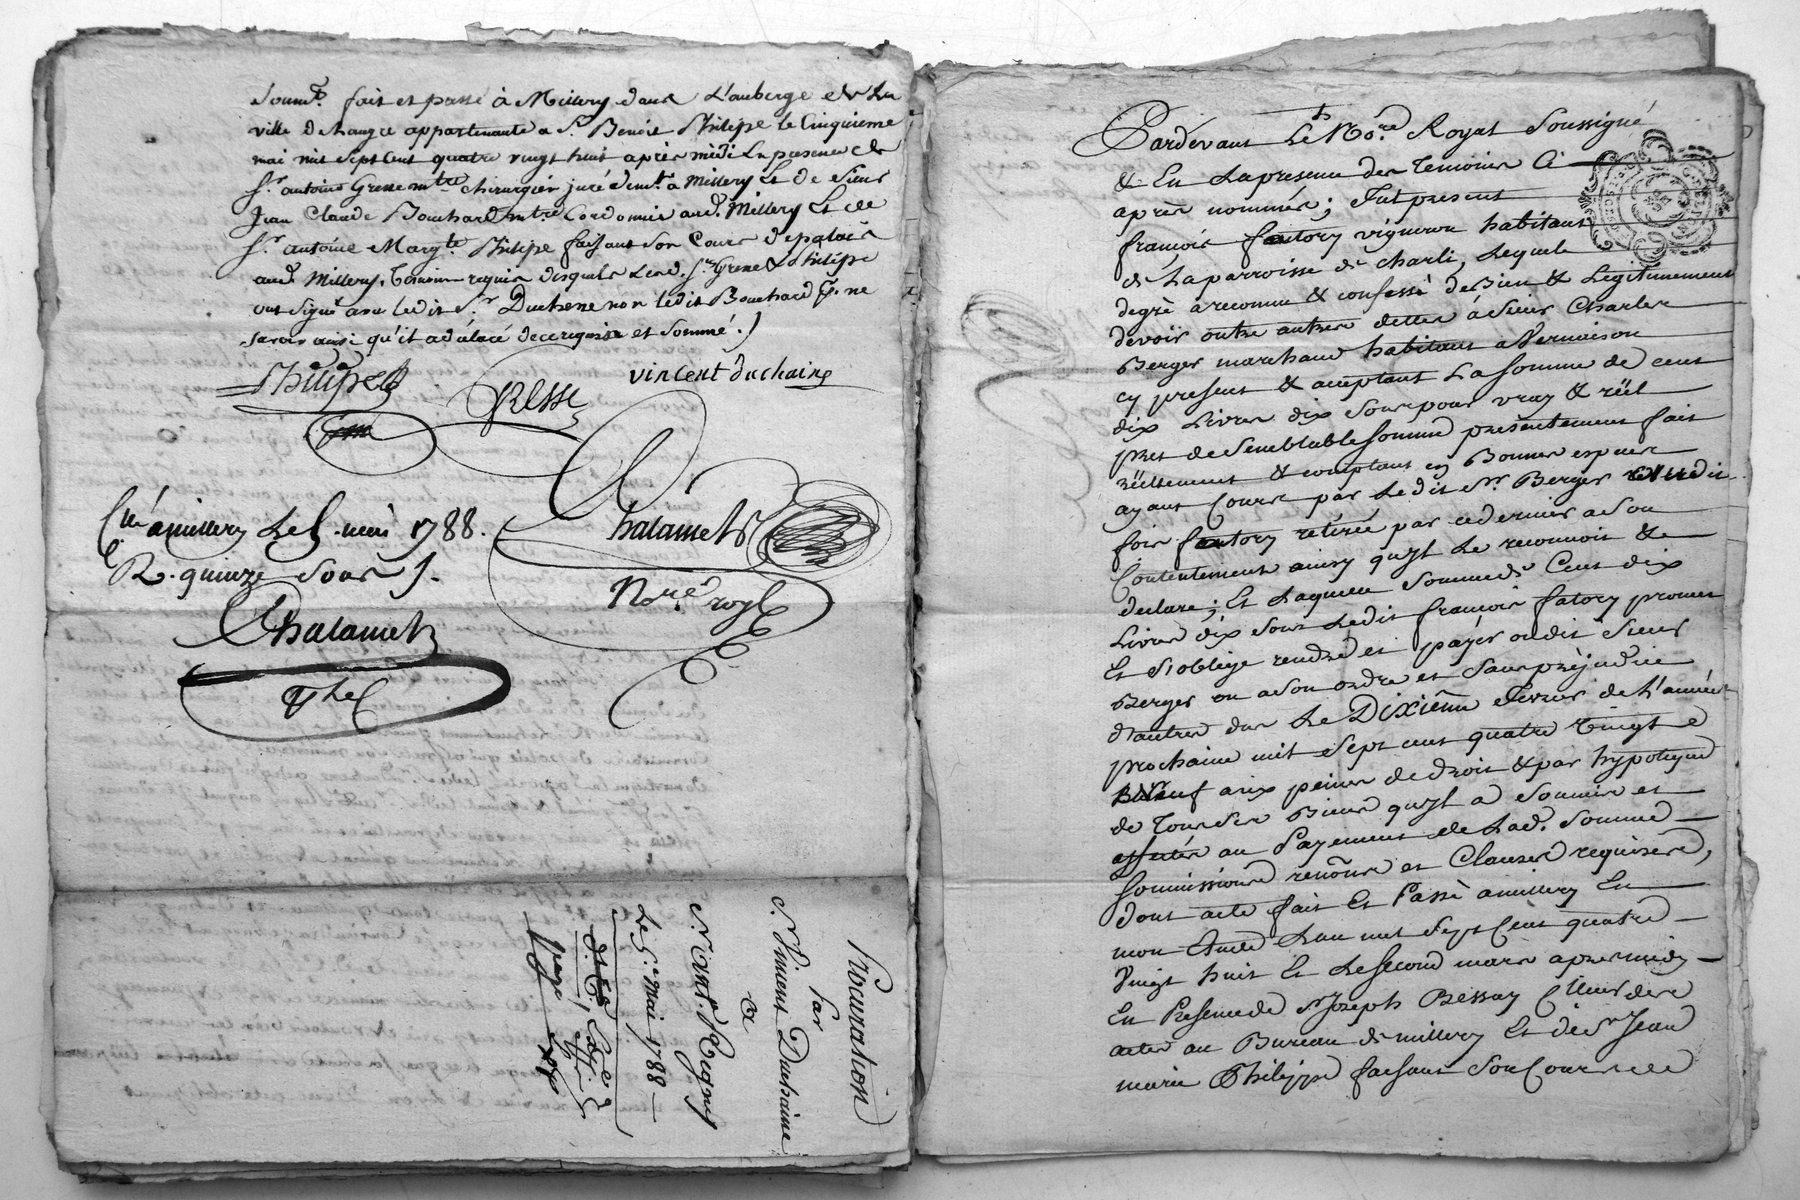 Soumis. fait et passé à Millery dans L'auberge de La
ville de haugre appartenante a Sr. Benoit Philipe le Cinquieme
mai mil sept cent quatre vingt huit après midi En presence de
Sr. antoine Gresse mtre chirurgien juré demt. a Millery Et de Sieur
Jean Claude Bouchard mtre Cordonnier aud. Millery Et de
Sr. antoine Margte. Philipe faisant Son Cours de palais
aud. Millery, temoins requis desquels Lesd. Srs. Gresse & Philipe
ont Signé avec Ledit Sr. Duchene non ledit Bouchard p. ne
Savoir ainsi qu'il a déclaré de ce requis et Sommé.)
Philipe
Gresse
vincent duchaine
Chalamel
Nore. royl
Cllé a millery Le 5. mai 1788.
R. quinze Sous
Chalamel
Procuration
Par
Sr. Vincent Duchaine
a
Sr. ant. Regny
Le 5e. Mai 1788
Pardevant Le Nore. Royal Soussigné
& En La presence des Temoins Ci
après nommés; Fut present
françois fatory vigneron habitant
de La parroisse de charli, Lequel
de gré a reconnu & confessé de Bien & Legitimement
devoir outre autres dettes à Sieur Charles
Berger marchand habitant a Vernaison
cy present & acceptant La Somme de cent
dix Livres dix Sous pour vray & réel
pret de Semblable Somme presentement fait
réellement & comptant en Bonnes especes
ayant Cours par Ledit Sr. Berger audit
fois fatory retirée par ce dernier a Son
Contentement ainsy qu'yl Le reconnoit &
declare; Et Laquelle Somme de Cent dix
Livres dix Sous Ledit françois fatory promet
Et S'oblige rendre et payer audit Sieur
Berger ou a Son ordre et Sans prèjudice
d'autres dus Le Dixième Fevrier de L'année
prochaine mil Sept cent quatre Vingt
Neuf aux peines de droit & par hypoteque
de Tous Ses Biens qu'yl a Soumis et
affectés au Payement de Lad. Somme
Soumissions renons et Clauses requises,
dont acte fait Et Passé a millery En
mon Etude L'an mil Sept Cent quatre
Vingt huit Et Le Second mars apres midy
En Presence de Sr Joseph Bessay Clleur des
actes au Bureau de millery Et de Sr Jean
marie Philippe faisant Son Cours de